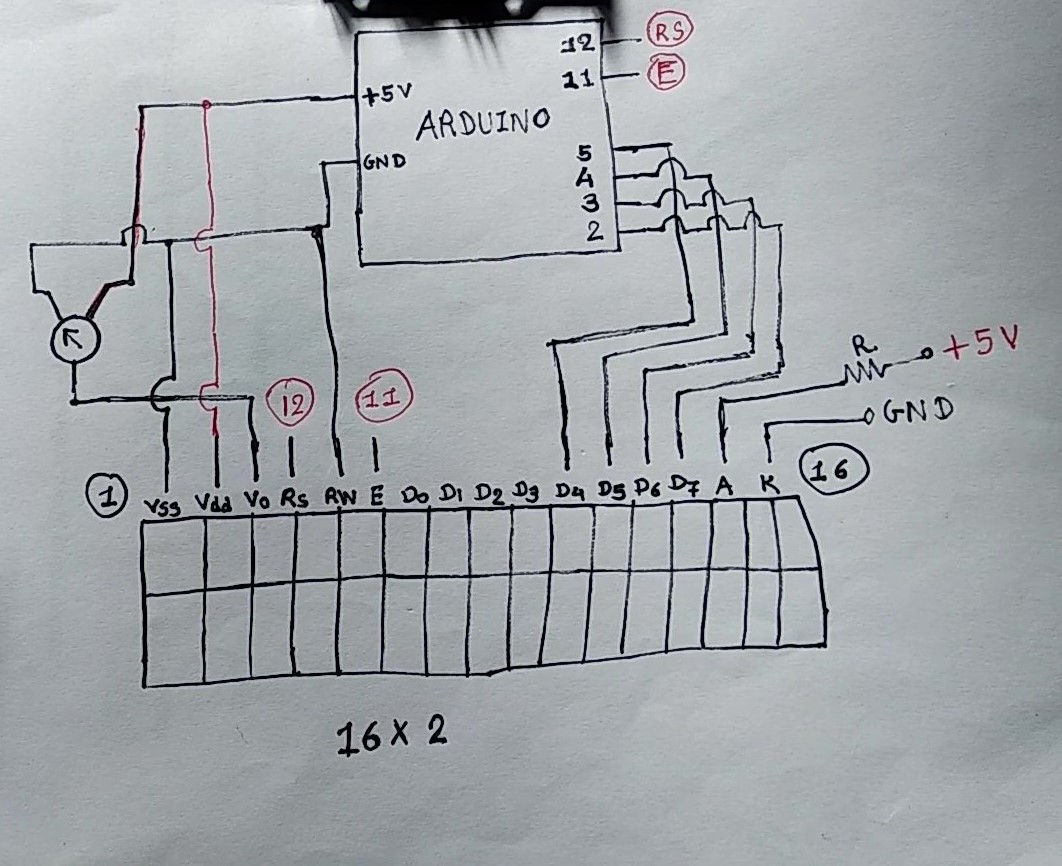 12 RS
11 E
+5V
ARDUINO
GND
5
4
3
2
R +5V
GND
12 11
1 Vss Vdd Vo Rs RW E Do D1 D2 D3 D4 D5 D6 D7 A K 16
16 X 2